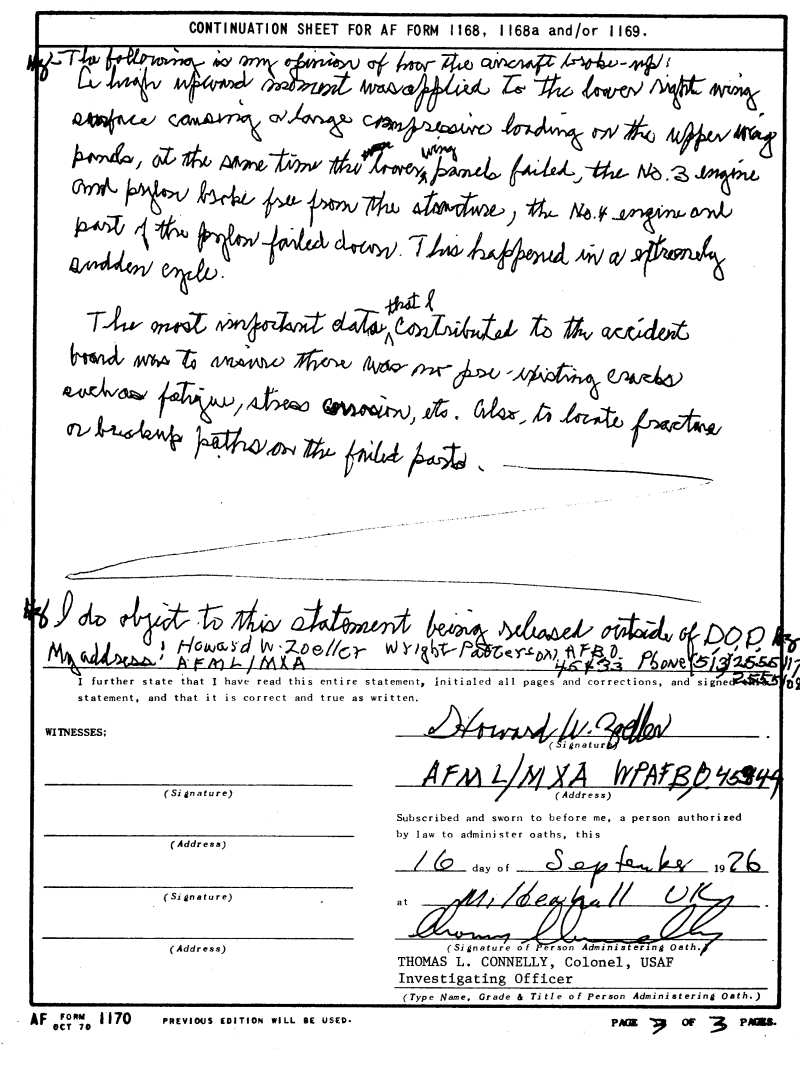 CONTINUATION SHEET FOR AF FORM 1168, 1168a and/or 1169.
The following is my opinion of how the aircraft broke-up:
A high upward moment was applied to the lower right wing
surface causing a large compressive loading on the upper wing
panels, at the same time the lower wing panels failed, the No. 3 engine
and pylon broke free from the structure, the No. 4 engine and
part of the pylon failed down. This happened in a extremely
sudden cycle.
The most important data that I contributed to the accident
board was to insure there was no pre-existing cracks
such as fatigue, stress corrosion, etc. Also, to locate fracture
or breakup paths on the failed parts.
I do object to this statement being released outside of D.O.D.
My address: Howard W. Zoeller Wright-Patterson, AFB O.
AFML/MXA 45433 Phone (513) 255 5117
255 5108
I further state that I have read this entire statement, initialed all pages and corrections, and signed this
statement, and that it is correct and true as written.
WITNESSES:
Howard W. Zoeller
(Signature)
AFML/MXA WPAFB O.
(Signature)
(Address)
Subscribed and sworn to before me, a person authorized
by law to administer oaths, this
(Address)
16 day of September 1976
(Signature)
at Mildenhall UK
(Signature of Person Administering Oath.)
(Address)
THOMAS L. CONNELLY, Colonel, USAF
Investigating Officer
(Type Name, Grade & Title of Person Administering Oath.)
AF FORM OCT 70 1170 PREVIOUS EDITION WILL BE USED. PAGE 3 OF 3 PAGES.